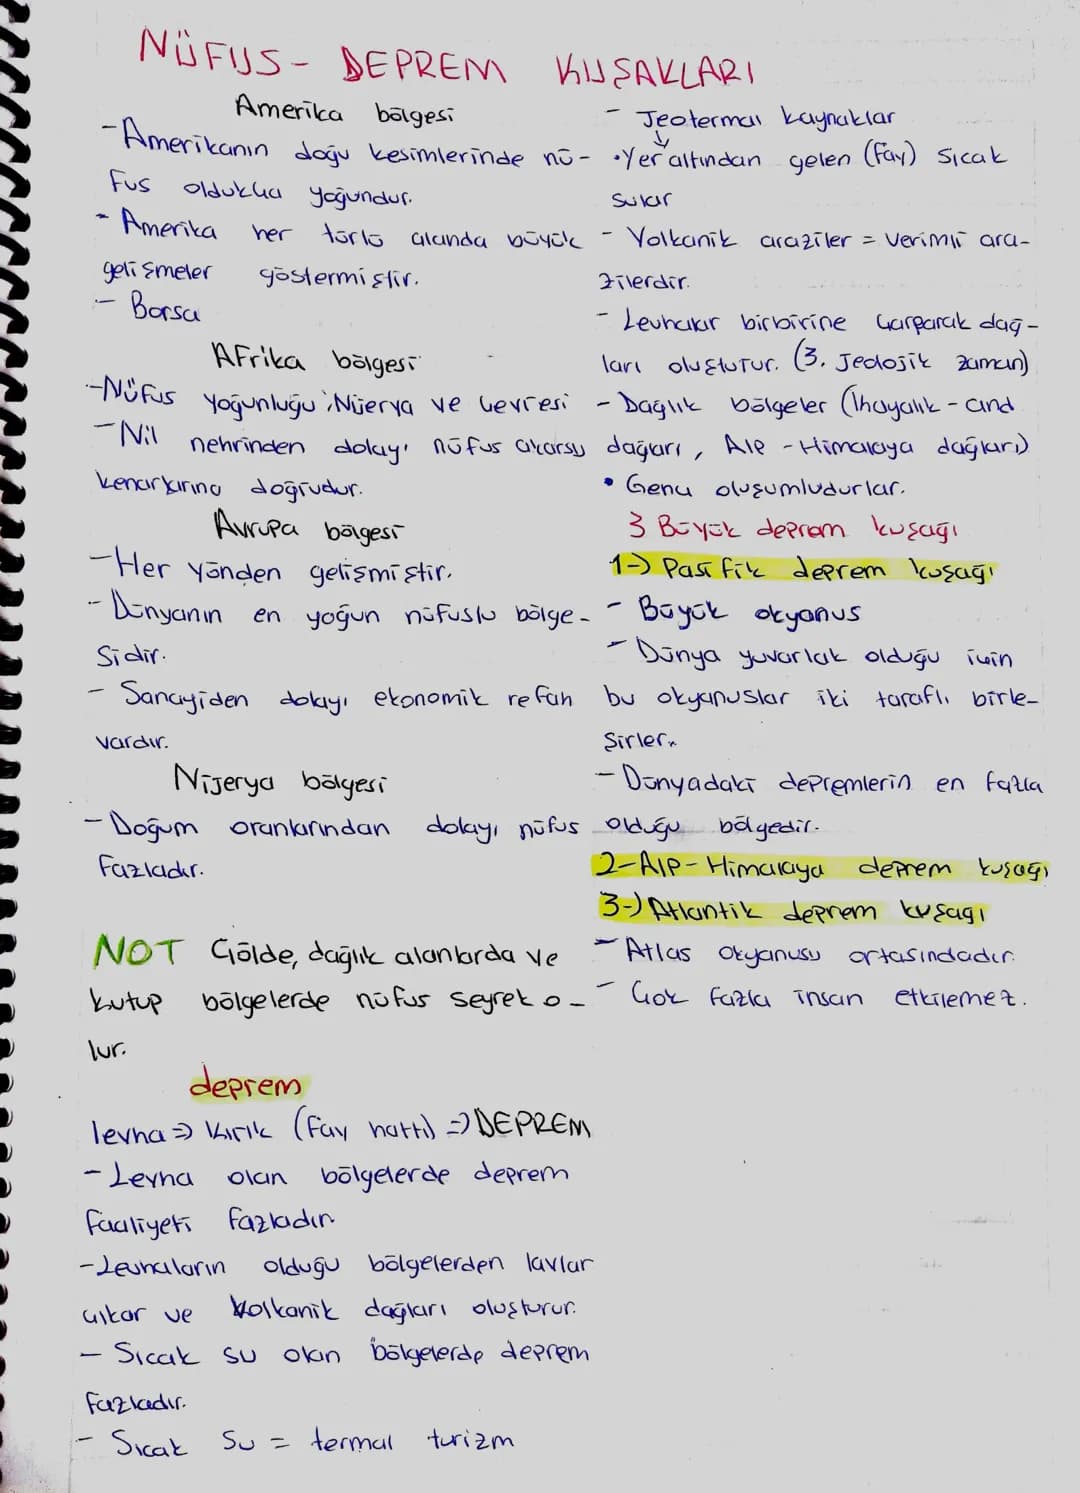 NÜFUS - DEPREM KUŞAKLARI
Amerika bölgesi
- Amerikanın doğu kesimlerinde nü-
fus oldukça yoğundur.
- Amerika her türlü alanda büyük
gelişmeler göstermiştir.
- Borsa
Afrika bölgesi
- Nüfus yoğunluğu; Nijerya ve çevresi
- Nil nehrinden dolayı nüfus akarsu
kenarlarına doğrudur.
Avrupa bölgesi
- Her yönden gelişmiştir.
- Dünyanın en yoğun nüfuslu bölge-
sidir.
- Sanayiden dolayı ekonomik refah
vardır.
Nijerya bölgesi
- Doğum oranlarından dolayı nüfus
fazladır.
NOT Çölde, dağlık alanlarda ve
kutup bölgelerde nüfus seyrek o-
lur.
deprem
levha => Kırık (fay hattı) => DEPREM
- Levha olan bölgelerde deprem
faaliyeti fazladır.
- Levhaların olduğu bölgelerden lavlar
çıkar ve Volkanik dağları oluşturur.
- Sıcak su olan bölgelerde deprem
fazladır.
- Sıcak Su = termal turizm
- Jeotermal kaynaklar
↓
• Yer altından gelen (fay) sıcak
sular
- Volkanik araziler = verimli ara-
zilerdir.
- Levhalar birbirine çarparak dağ-
ları oluşturur. (3. Jeolojik zaman)
- Dağlık bölgeler (Kayalık - and
dağları, Alp - Himalaya dağları)
• Genç oluşumludurlar.
3 Büyük deprem kuşağı
1-) Pasifik deprem kuşağı
- Büyük okyanus
- Dünya yuvarlak olduğu için
bu okyanuslar iki taraflı birle-
şirler.
- Dünyadaki depremlerin en fazla
olduğu bölgedir.
2- Alp - Himalaya deprem kuşağı
3-) Atlantik deprem kuşağı
- Atlas Okyanusu ortasındadır.
- Çok fazla insan etkilemez.